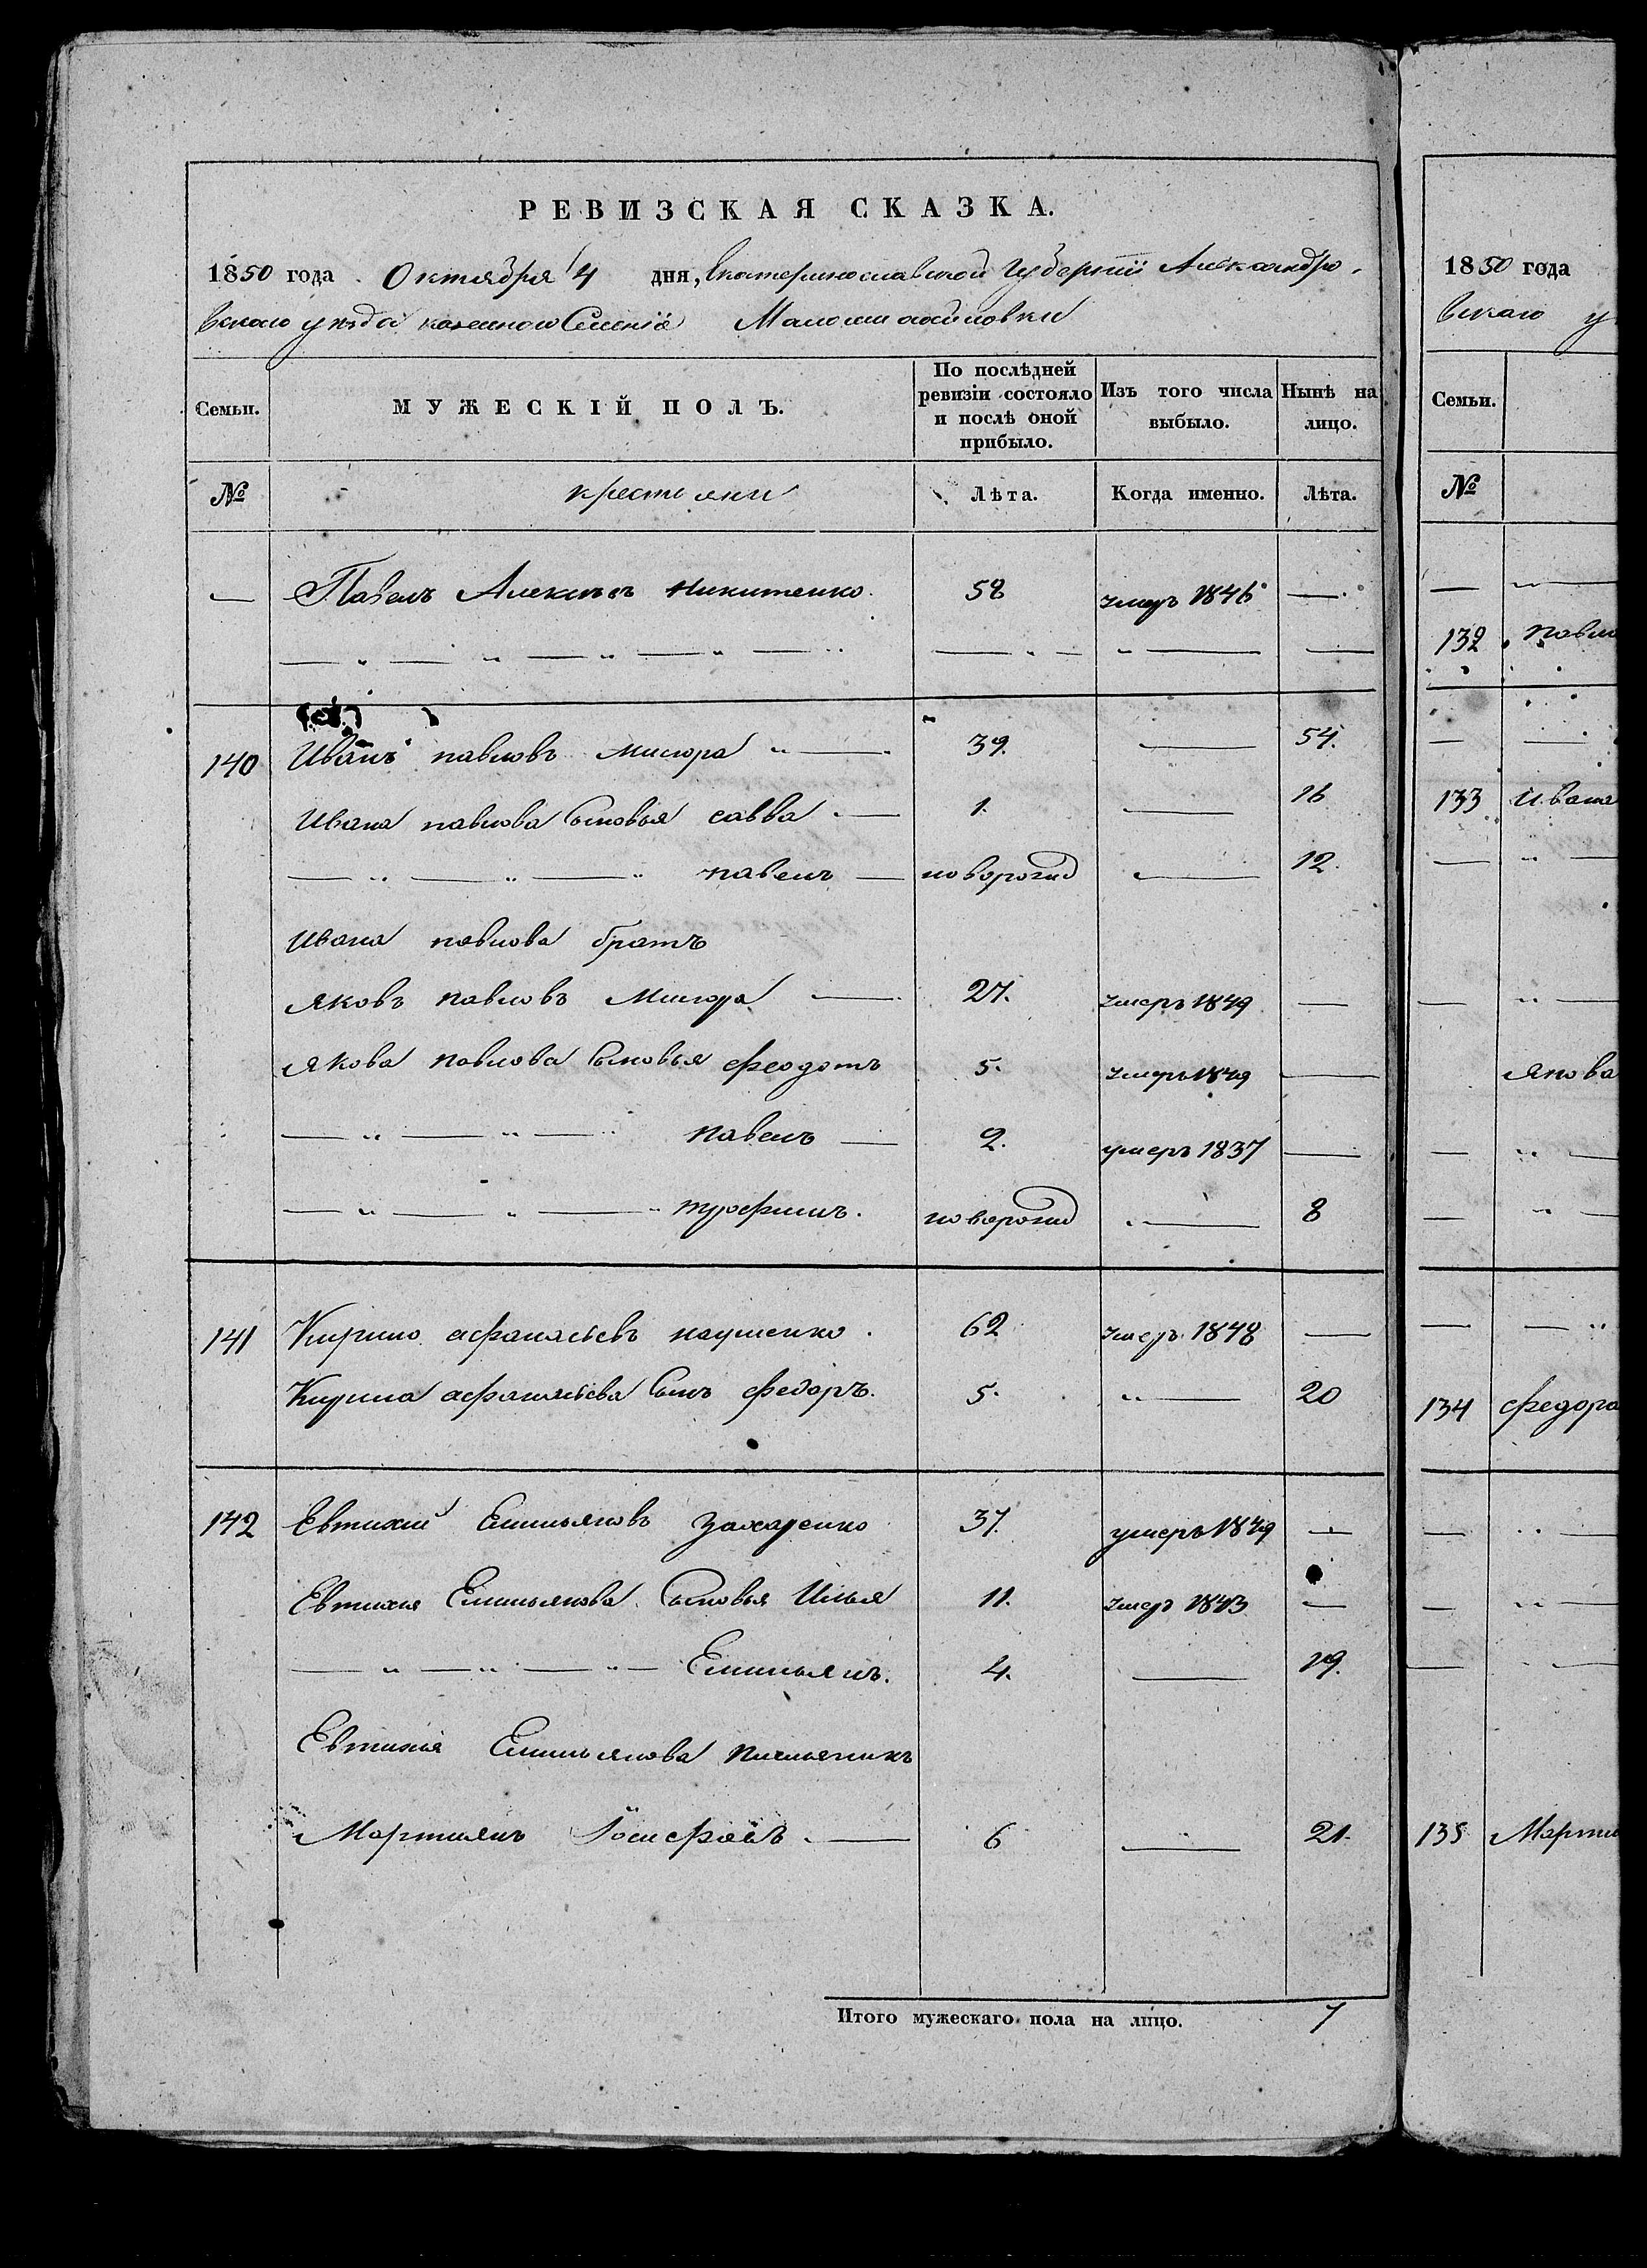 РЕВИЗСКАЯ СКАЗКА.
1850 года Октября 4 дня, Екатеринославской Губерніи Александро-
вскаго уѣзда казеннаго Селенія
МУЖЕСКІЙ ПОЛЪ.
Семьи. По послѣдней ревизіи состояло и послѣ оной прибыло. Изъ того числа выбыло. Нынѣ на лицо.
№ крестьяни Лѣта. Когда именно. Лѣта.
— Павелъ Алексѣевъ Никитенко. 58 умеръ 1846 —
140 Иванъ павловъ мисюра — 39. — 54.
Ивана павлова Сыновья савва — 1. — 16
— " — " — " павелъ — новорожд — 12.
Ивана павлова братъ
Яковъ павловъ Мисюра — 27. умеръ 1849 —
Якова павлова Сыновья феодотъ 5. умеръ 1849 —
— " — " — " павелъ — 2. умеръ 1837 —
— " — " — " трофимъ. новорожд " — 8
141 Кирило афанасьевъ науменко. 62 умеръ 1848 —
Кирила афанасьева Сынъ федоръ. 5. " — 20
142 Евтихий Емильяновъ Захаренко 37. умеръ 1849 —
Евтихия Емильянова Сыновья Илья 11. умеръ 1843 —
— " — " — " — Емильянъ. 4. — 19.
Евтихія Емильянова племяникъ
Мартиянъ Іосифовъ — 6 — 21.
Итого мужескаго пола на лицо. 7
1850 года
вскаго у
Семьи.
№
132
133 Ивана
Якова
134 федора
135 Марти